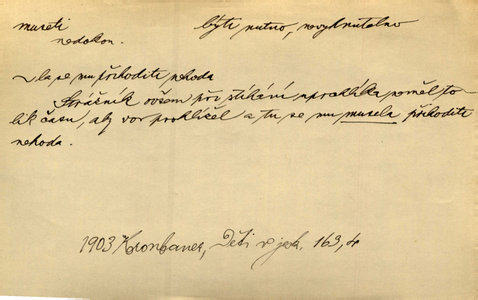 museti býti nutno, nevyhnutelno
nedokon.
‿la se mu přihoditi nehoda
Strážník ovšem při stíhání uprchlíka neměl to-
lik času, aby vor proklíčel a tu se mu musela přihoditi
nehoda.
1903 Kronbauer, Děti v jek. 163,4